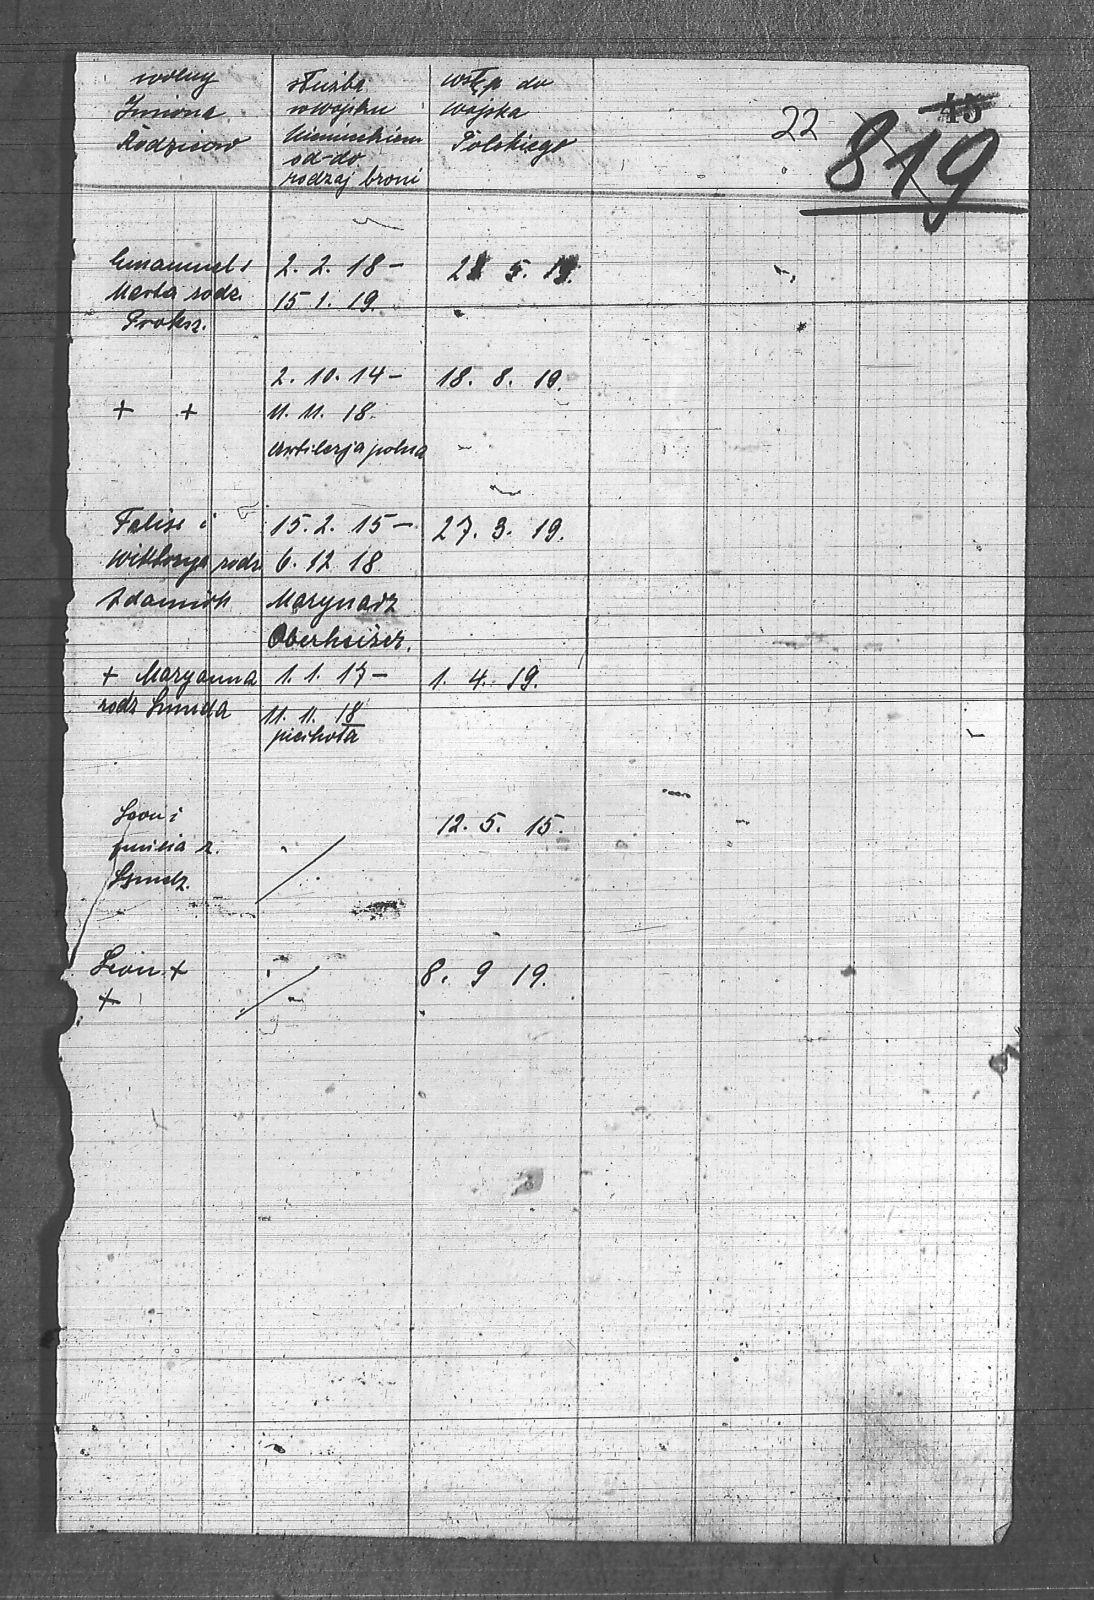 wolny
Imiona
Rodziców
służba
w wojsku
niemieckiem
od-do
rodzaj broni
wstęp do
wojska
Polskiego
22
45
819
Emanuel i
Marta rodz.
Proksz.
2. 2. 18 –
15. 1. 19.
5. 19.
+ +
2. 10. 14 –
11. 11. 18
artilerja polna
18. 8. 19.
Felise i
Wiktorya rodz
Adamick
15. 2. 15 –
6. 12 18
Marynarz
Oberheiser.
27. 3. 19.
+ Maryanna
rodz Smuda
1. 1. 17 –
11. 11. 18
piechota
1. 4. 19.
Leon i
r.
12. 5. 15.
Leon +
+
8. 9 19.